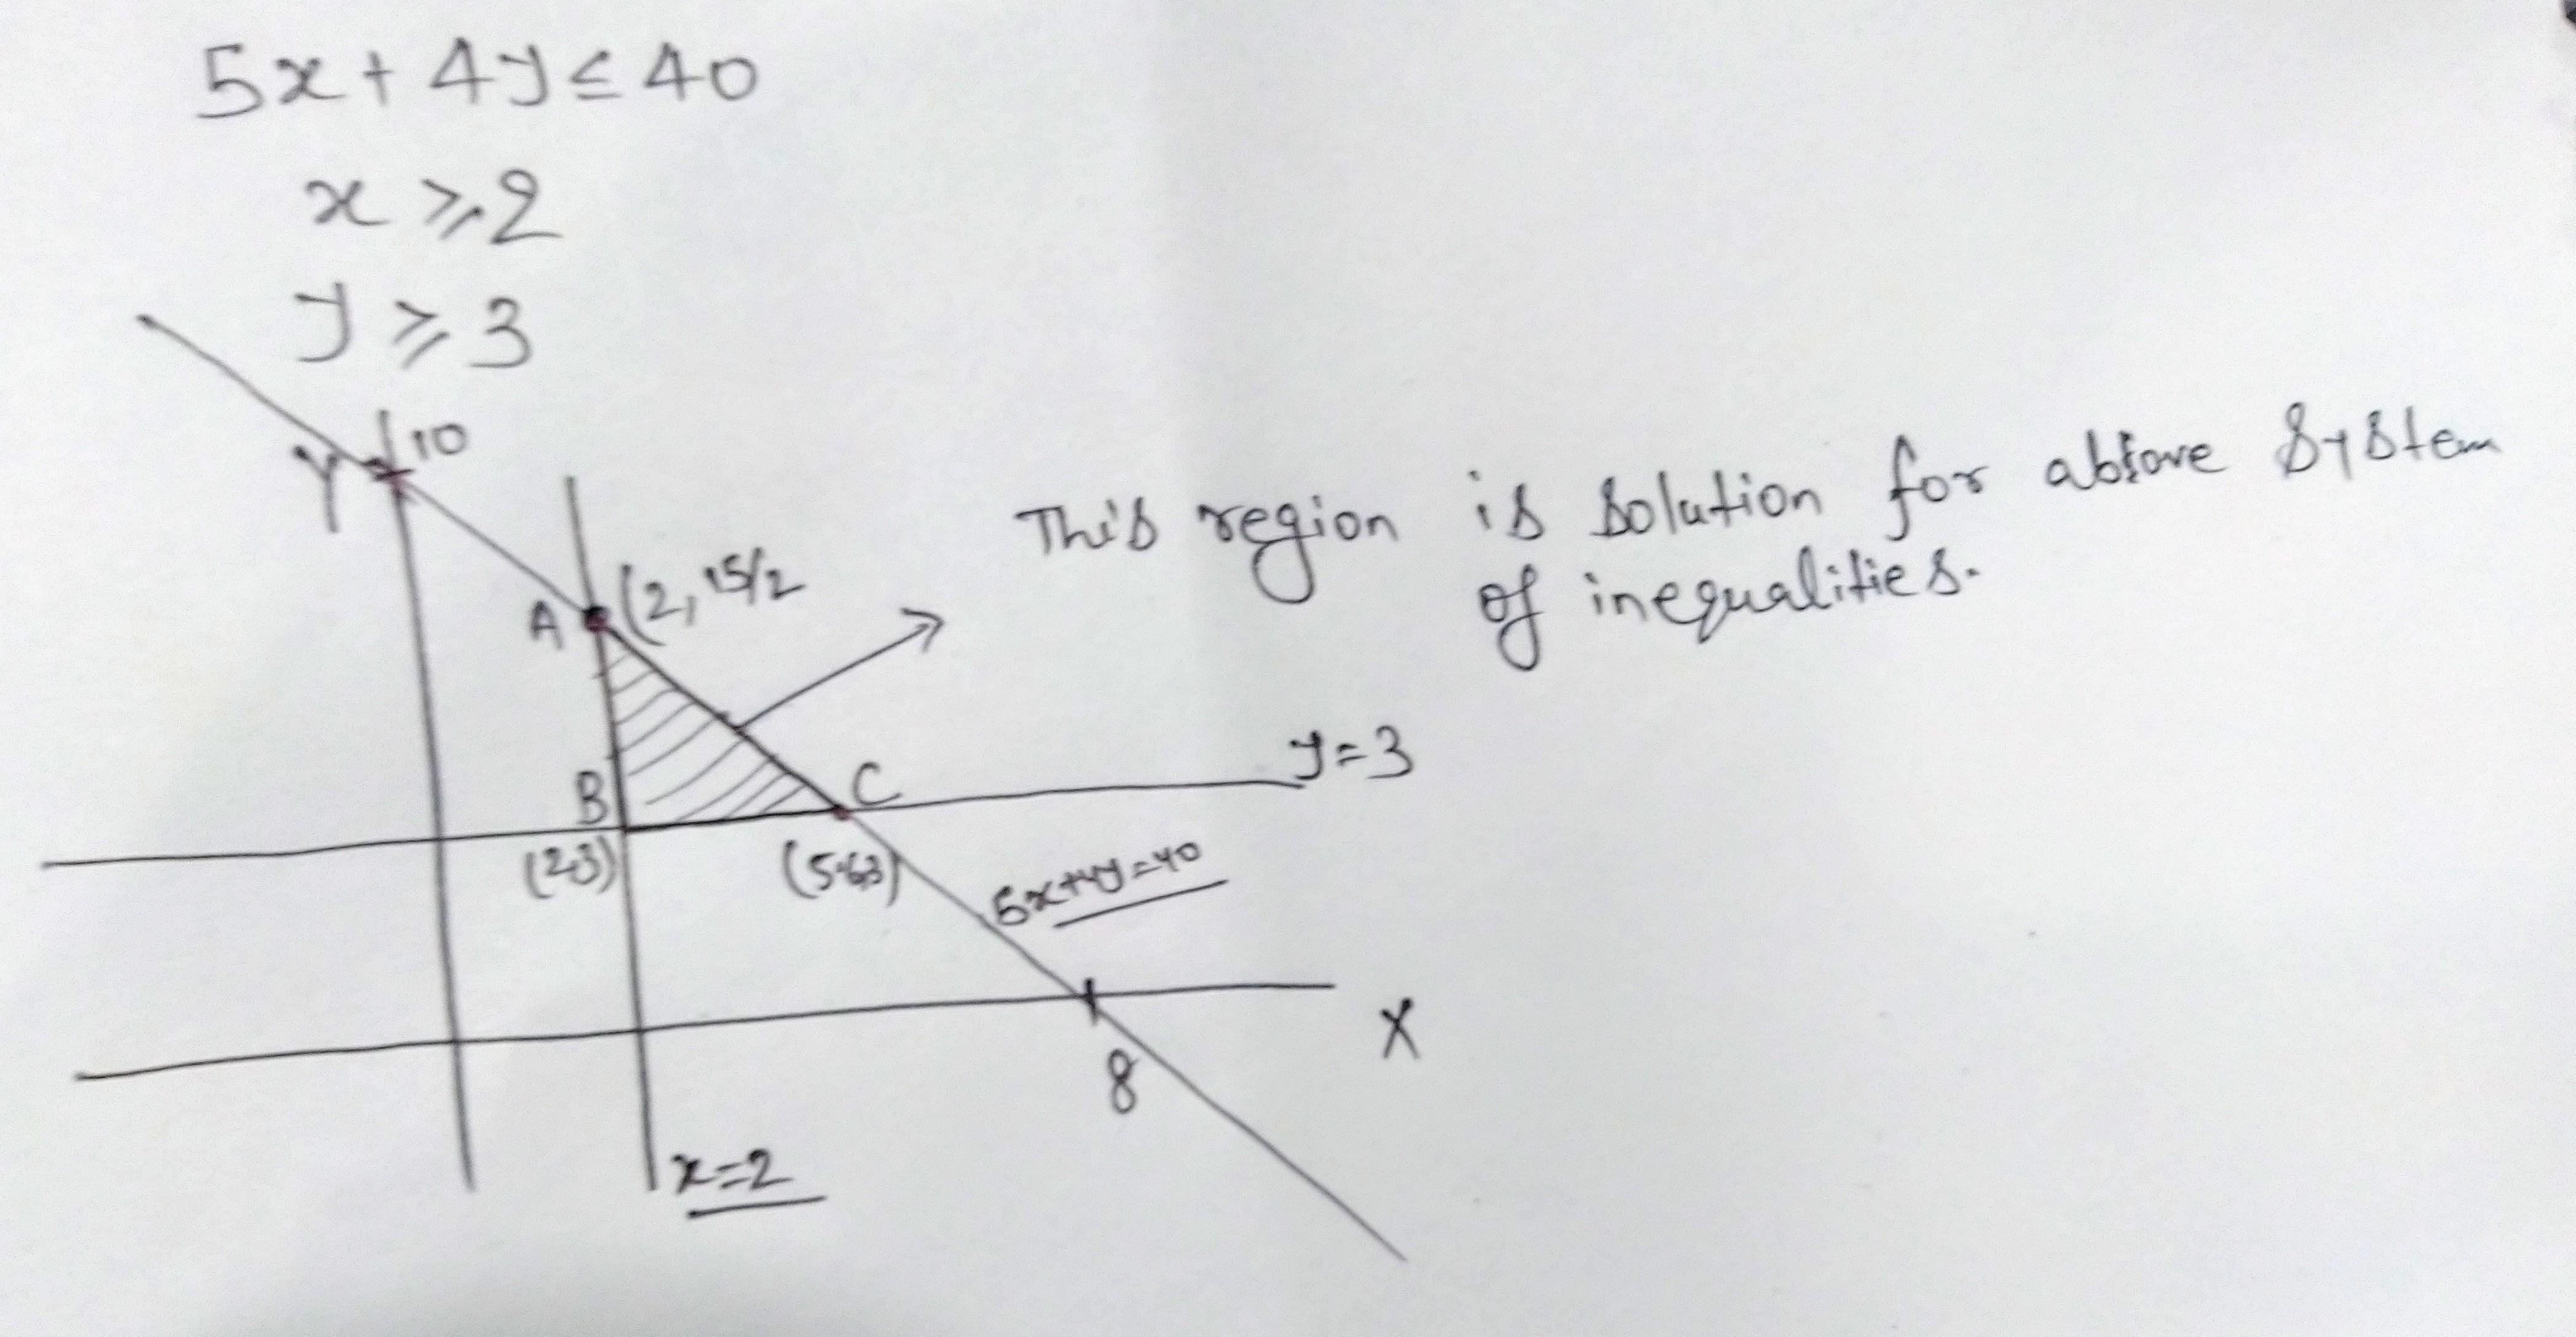 5x + 4y ≤ 40
x ⩾ 2
y ⩾ 3
Y 10
A (2, 15/2
This region is solution for above System
of inequalities.
y=3
B C
(2,3) (5.6,3)
5x+4y=40
X
8
x=2